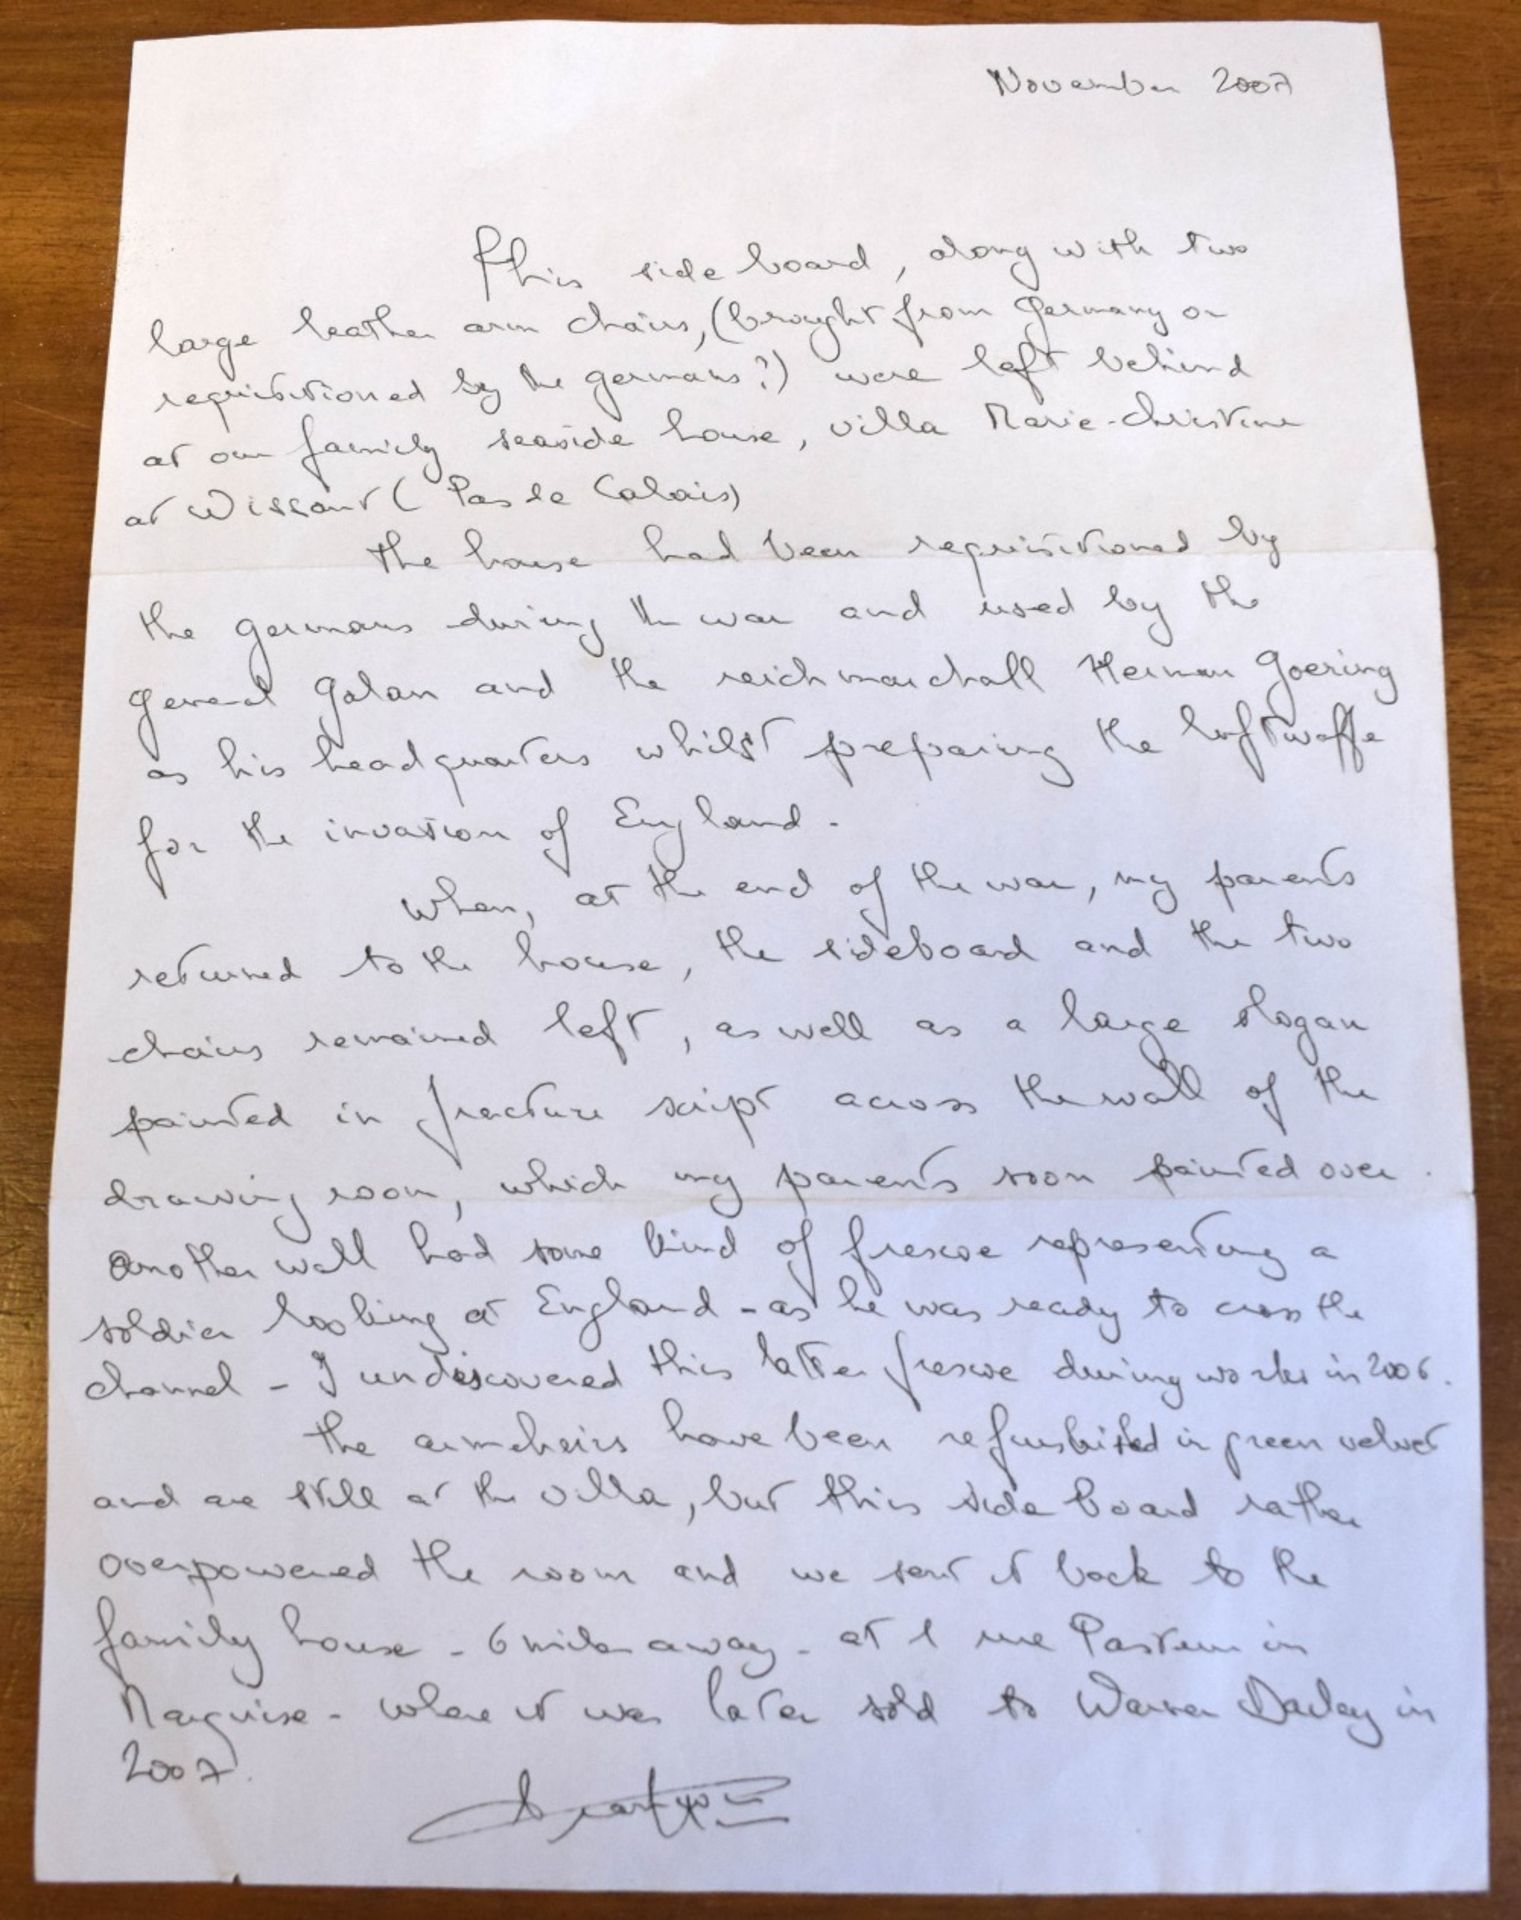 November 2007
This side board, along with two
large leather arm chairs, (brought from Germany or
requisitioned by the germans?) were left behind
at our family seaside house, villa Marie-Christine
at Wissant ( Pas de Calais)
the house had been requisitioned by
the germans during the war and used by the
general Galan and the reichmarchall Herman Goering
as his headquarters whilst preparing the luftwaffe
for the invasion of England.
When, at the end of the war, my parents
returned to the house, the sideboard and the two
chairs remained left, as well as a large slogan
painted in fracture script across the wall of the
drawing room, which my parents soon painted over.
Another wall had some kind of frescoe representing a
soldier looking at England - as he was ready to cross the
channel - I undiscovered this latter frescoe during works in 2006.
the armchairs have been refurbished in green velvet
and are still at the villa, but this side board rather
overpowered the room and we sent it back to the
family house - 6 miles away - at 1 rue Pasteur in
Marquise - where it was later sold to Warren Dailey in
2007.